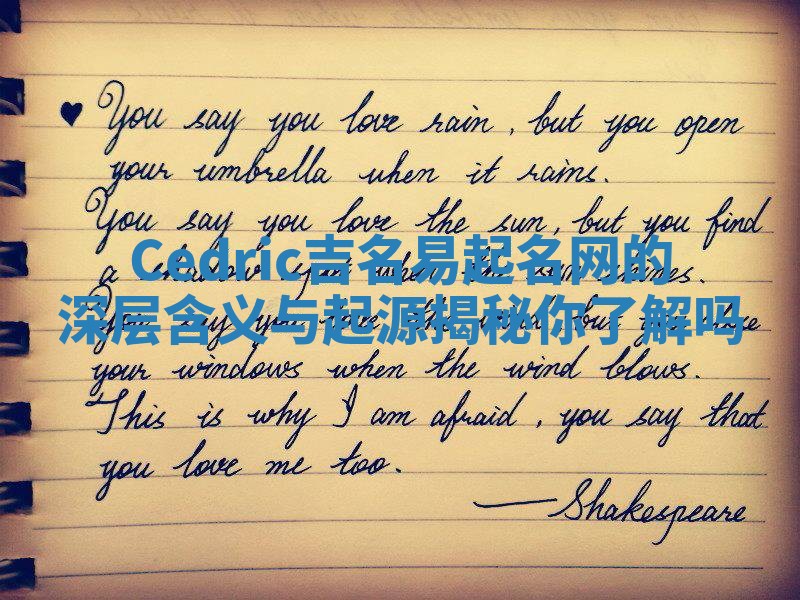 ♥ You say you love rain, but you open
your umbrella when it rains.
You say you love the sun, but you find
Cedric吉名易起名网的
a shadow spot when the sun shines.
深层含义与起源揭秘你了解吗
You say you love the wind, but you close
your windows when the wind blows.
This is why I am afraid, you say that
you love me too.
—Shakespeare